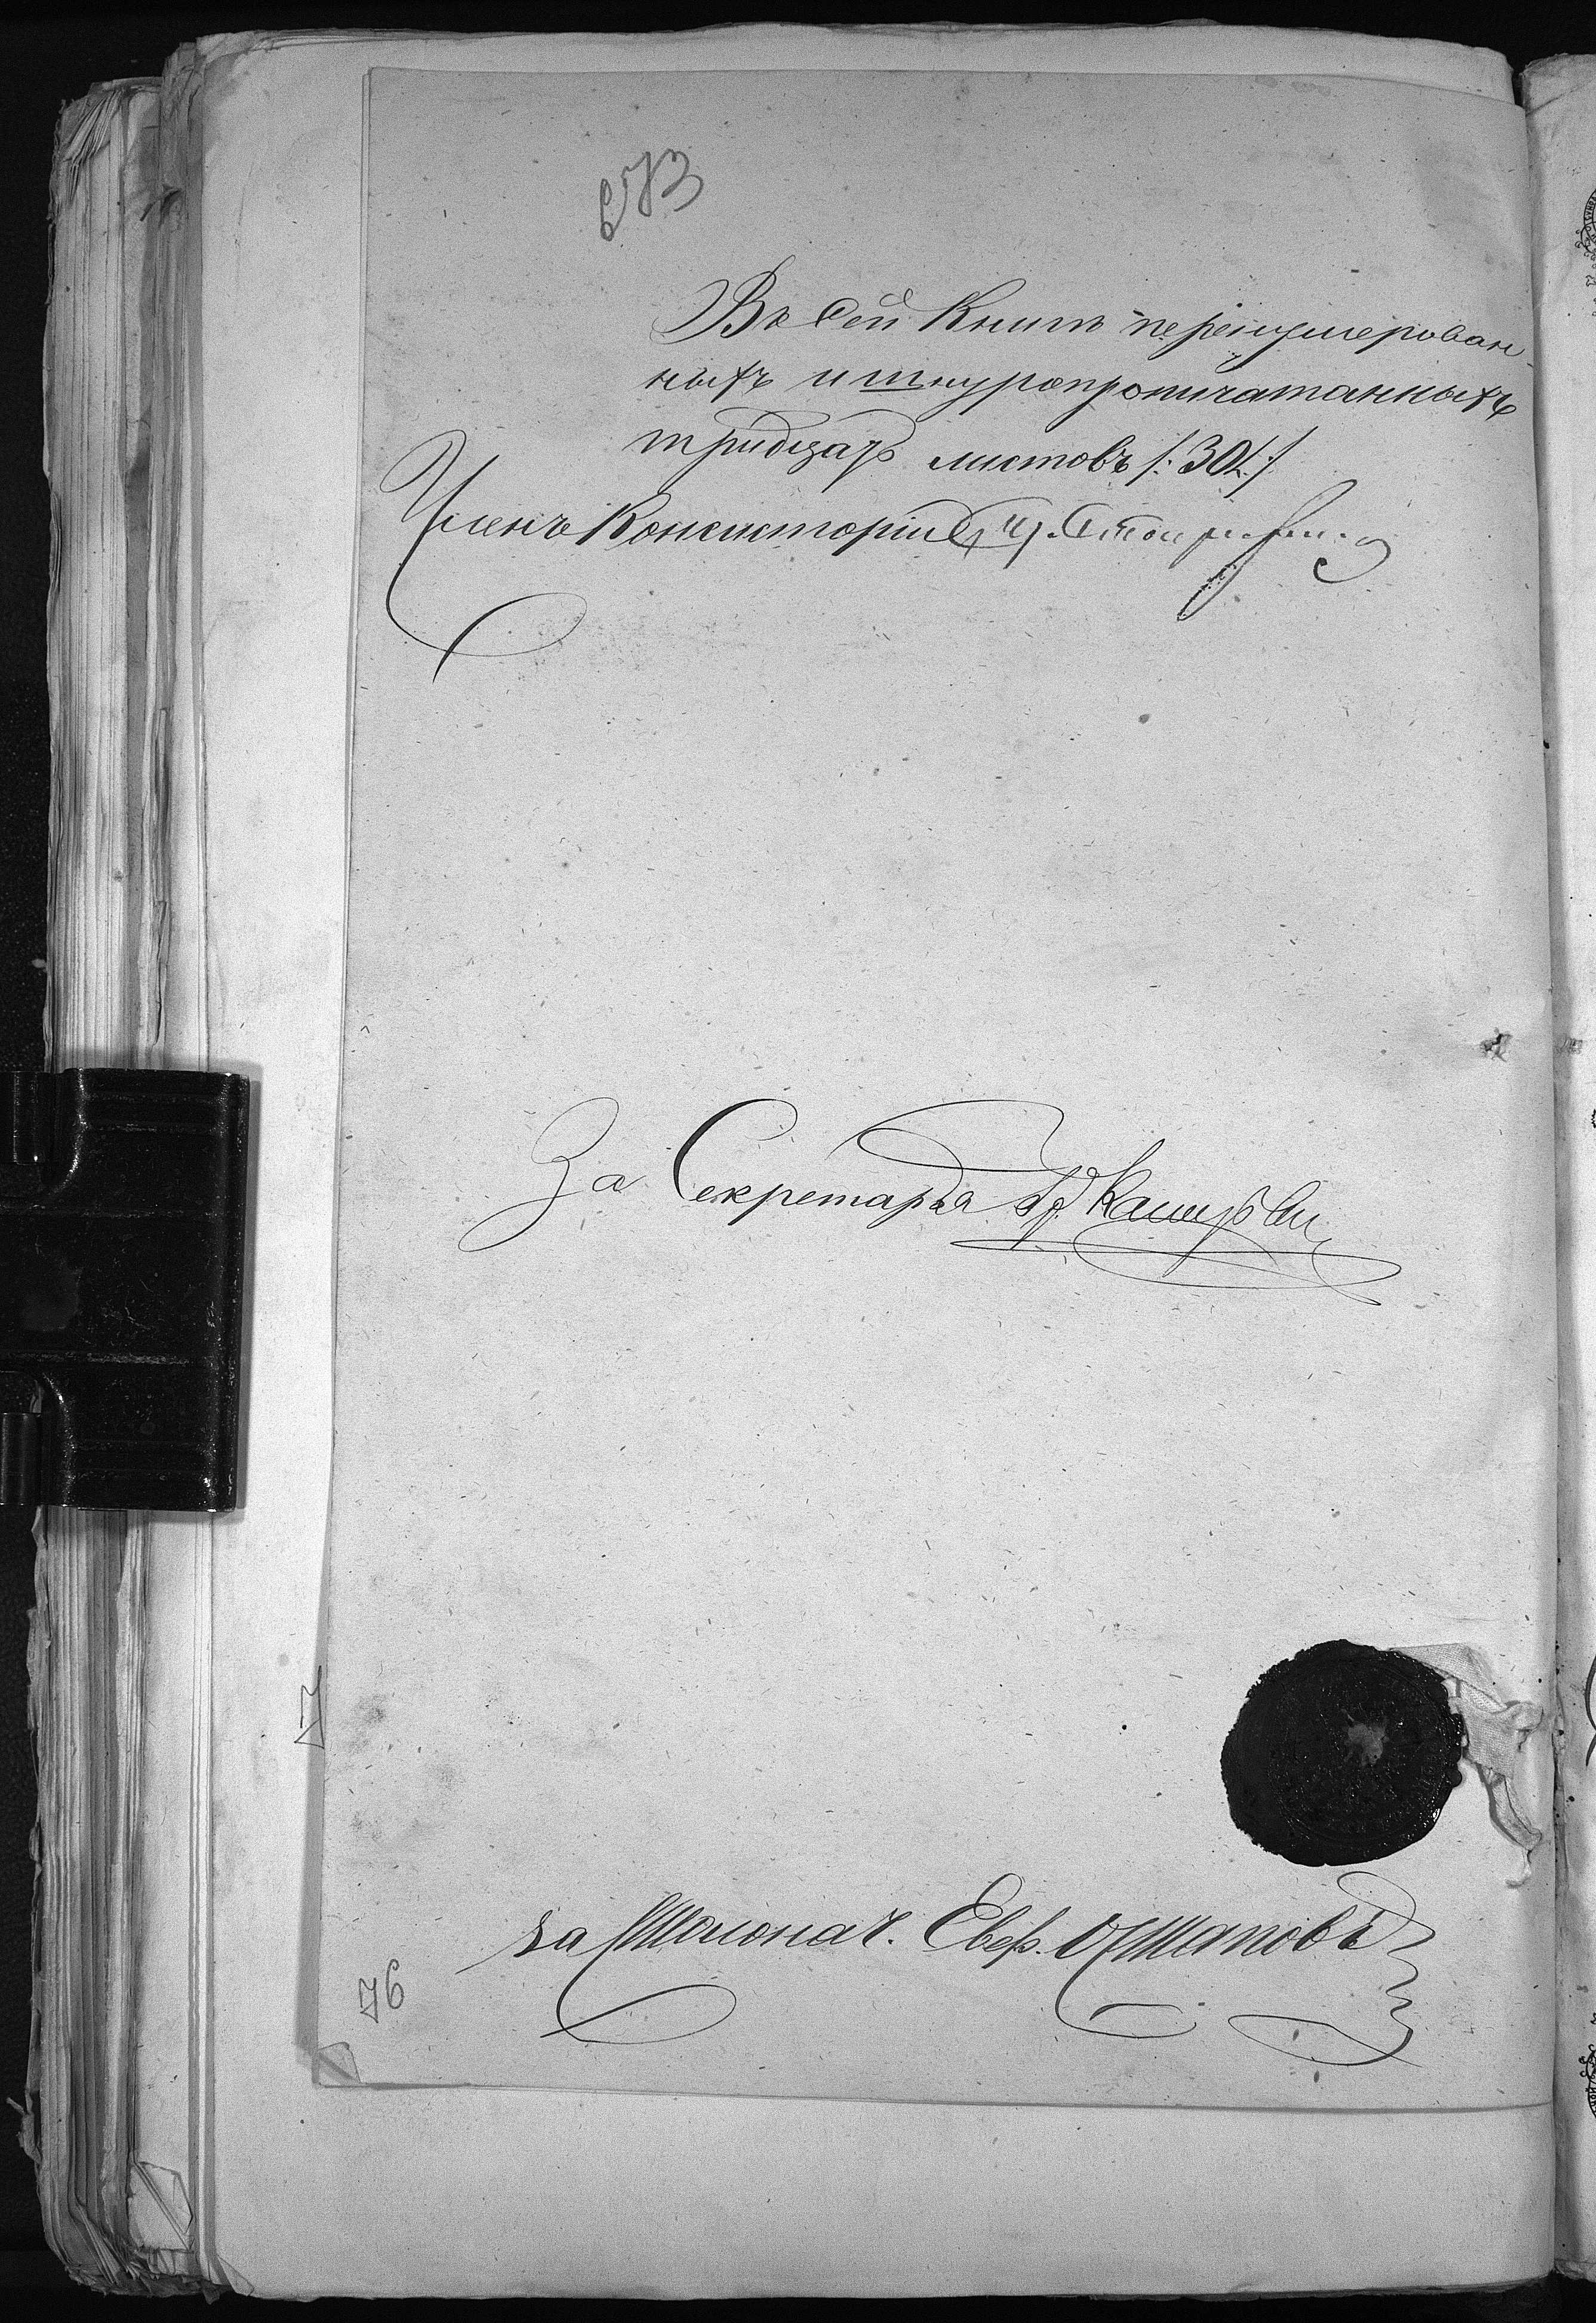 673
Въ сей Книгѣ перенумерован-
ныхъ и шнуропропечатанныхъ
тридцать листовъ /:30:/
Членъ Консисторіи
За Секретаря
за Столонач. Евг.
76